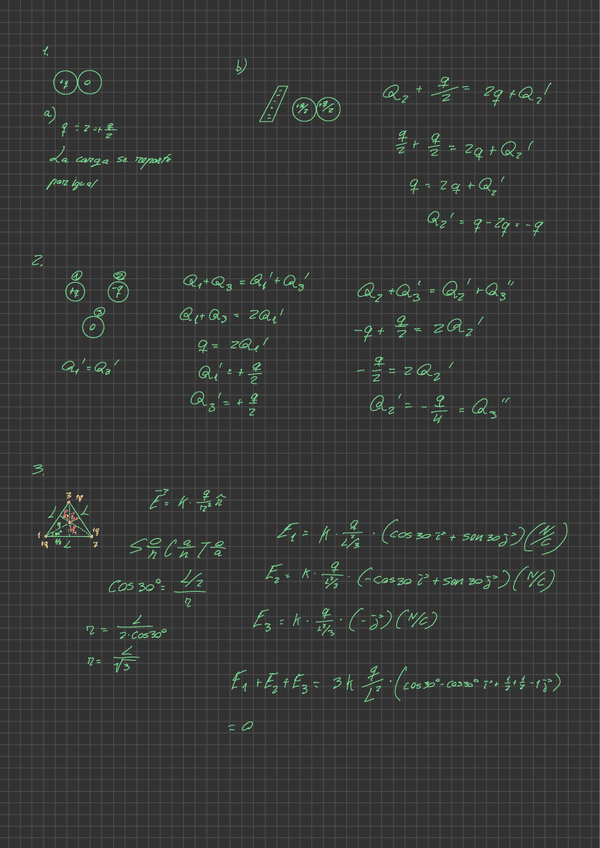 1.
+q 0
a)
q ÷ 2 = + q/2
La carga se reparte
por igual
b)
+q/2 +q/2
Q₂ + q/2 = 2q + Q₂'
q/2 + q/2 = 2q + Q₂'
q = 2q + Q₂'
Q₂' = q - 2q = -q
2.
1 2
+q -q
3
0
Q₁' = Q₃'
Q₁ + Q₃ = Q₁' + Q₃'
Q₁ + Q₃ = 2Q₁'
q = 2Q₁'
Q₁' = + q/2
Q₃' = + q/2
Q₂ + Q₃' = Q₂' + Q₃''
-q + q/2 = 2Q₂'
- q/2 = 2Q₂'
Q₂' = - q/4 = Q₃''
3.
3
L L
1 L 2
E⃗ = K · q/r² r̂
S o/h C a/h T o/a
cos 30° = (L/2)/r
r = L/(2·cos30°)
r = L/√3
E₁ = K · q/(L²/3) · (cos30 i⃗ + sen30 j⃗) (N/C)
E₂ = K · q/(L²/3) · (-cos30 i⃗ + sen30 j⃗) (N/C)
E₃ = K · q/(L²/3) · (-j⃗) (N/C)
E₁ + E₂ + E₃ = 3K q/L² · (cos30° - cos30° i⃗ + 1/2 + 1/2 - 1 j⃗)
= 0